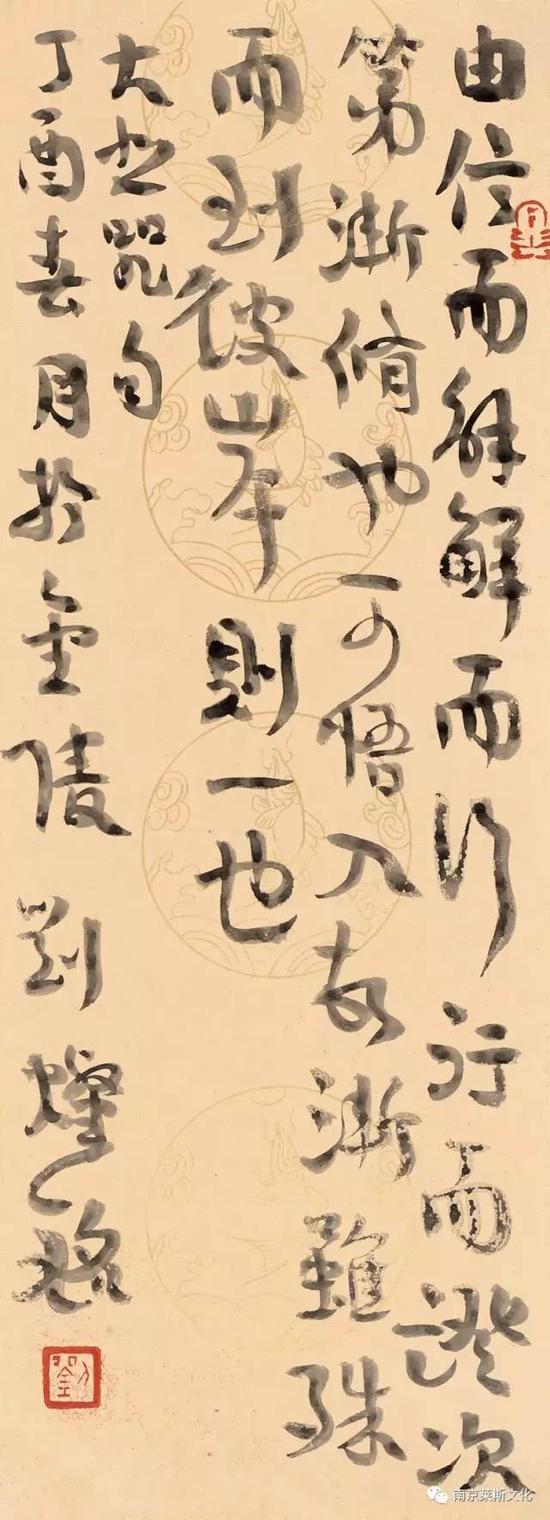 由信而解解而行行而證次
第漸脩也一悟入漸雖殊
而到彼岸則一也
大悲咒句
丁酉春月於金陵 劉燦銘
劉
南京莱斯文化